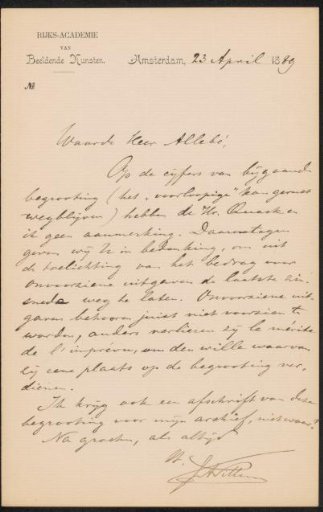 RIJKS-ACADEMIE
VAN
Beeldende Kunsten.
Amsterdam, 23 April 1889
No
Waarde Heer Allebé,
Op de cijfers van bijgaande
begrooting (het "voorloopige" kan gerust
wegblijven) hebben de Hr. en
ik geen aanmerking. Daarentegen
geven wij U in bedenking, om uit
de toelichting van het bedrag voor
onvoorziene uitgaven de laatste zin-
snede weg te laten. Onvoorziene uit-
gaven behoeven juist niet voorzien te
worden, anders verliezen zij le mérite
de l'imprévu, om den wille waarvan
zij eene plaats op de begrooting ver-
dienen.
Ik krijg ook een afschrift van deze
begrooting voor mijn archief, niet waar?
Na groeten, als altijd